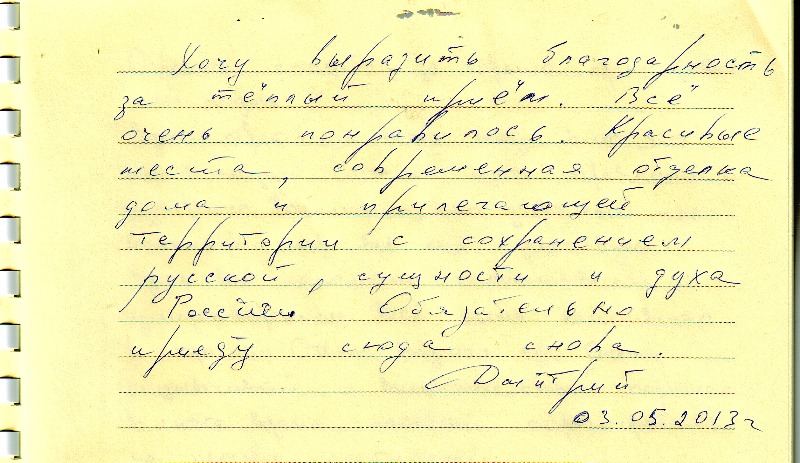 Хочу выразить благодарность
за тёплый приём. Всё
очень понравилось. Красивые
места, современная отделка
дома и прилегающей
территории с сохранением
русской, сущности и духа
России. Обязательно
приеду сюда снова.
Дмитрий
03.05.2013г